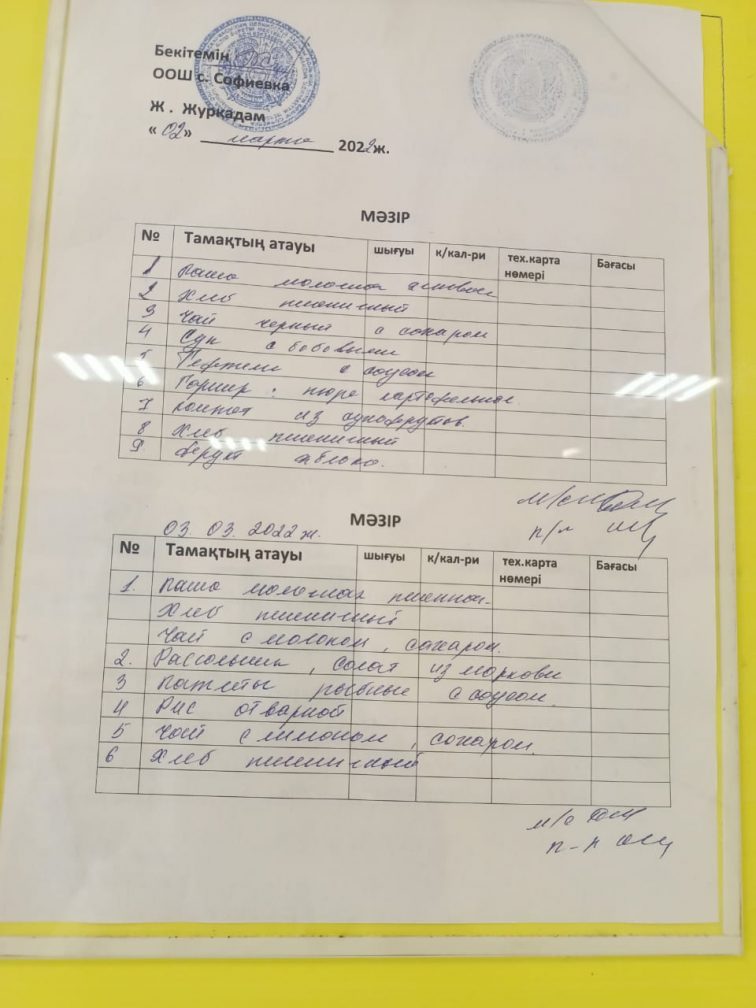 Бекітемін
ООШ с. Софиевка
Ж . Журкадам
« 02» марта 2022ж.
МӘЗІР
№ Тамақтың атауы шығуы к/кал-ри тех.карта нөмері Бағасы
1 Каша молочная
2 Хлеб пшеничный
3 Чай черный с сахаром
4 Суп с бобовыми
5 Тефтели с соусом
6 Гарнир : пюре картофельное
7 Компот из сухофруктов
8 Хлеб пшеничный
9 Фрукт яблоко.
МӘЗІР
03 03. 2022ж.
№ Тамақтың атауы шығуы к/кал-ри тех.карта нөмері Бағасы
1. Каша молочная пшенная.
Хлеб пшеничный
Чай с молоком , сахаром.
2. Рассольник , салат из моркови
3 Котлеты рыбные с соусом.
4 Рис отварной
5 Чай с лимоном , сахаром.
6 Хлеб пшеничный
м/с